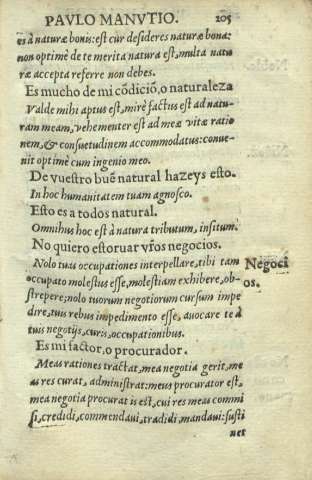 PAVLO MANVTIO. 205
es à naturæ bonis: est cur desideres naturæ bona:
non optimè de te merita natura est, multa natu
ræ accepta referre non debes.
Es mucho de mi cõdiciõ, o naturaleza
Valde mihi aptus est, mirè factus est ad natu-
ram meam, vehementer est ad meæ vitæ ratio
nem, & consuetudinem accommodatus: conue-
nit optimè cum ingenio meo.
De vuestro buẽ natural hazeys esto.
In hoc humanitatem tuam agnosco.
Esto es a todos natural.
Omnibus hoc est à natura tributum, insitum.
No quiero estoruar vr̃os negocios.
Nolo tuas occupationes interpellare, tibi tam
occupato molestus esse, molestiam exhibere, ob-
strepere; nolo tuorum negotiorum cursum impe
dire, tuis rebus impedimento esse, auocare te à
tuis negotijs, curis, occupationibus.
Negoci
os.
Es mi factor, o procurador.
Meas rationes tractat, mea negotia gerit, me
as res curat, administrat: meus procurator est,
mea negotia procurat is est, cui res meas commi
si, credidi, commendaui, tradidi, mandaui: susti
net